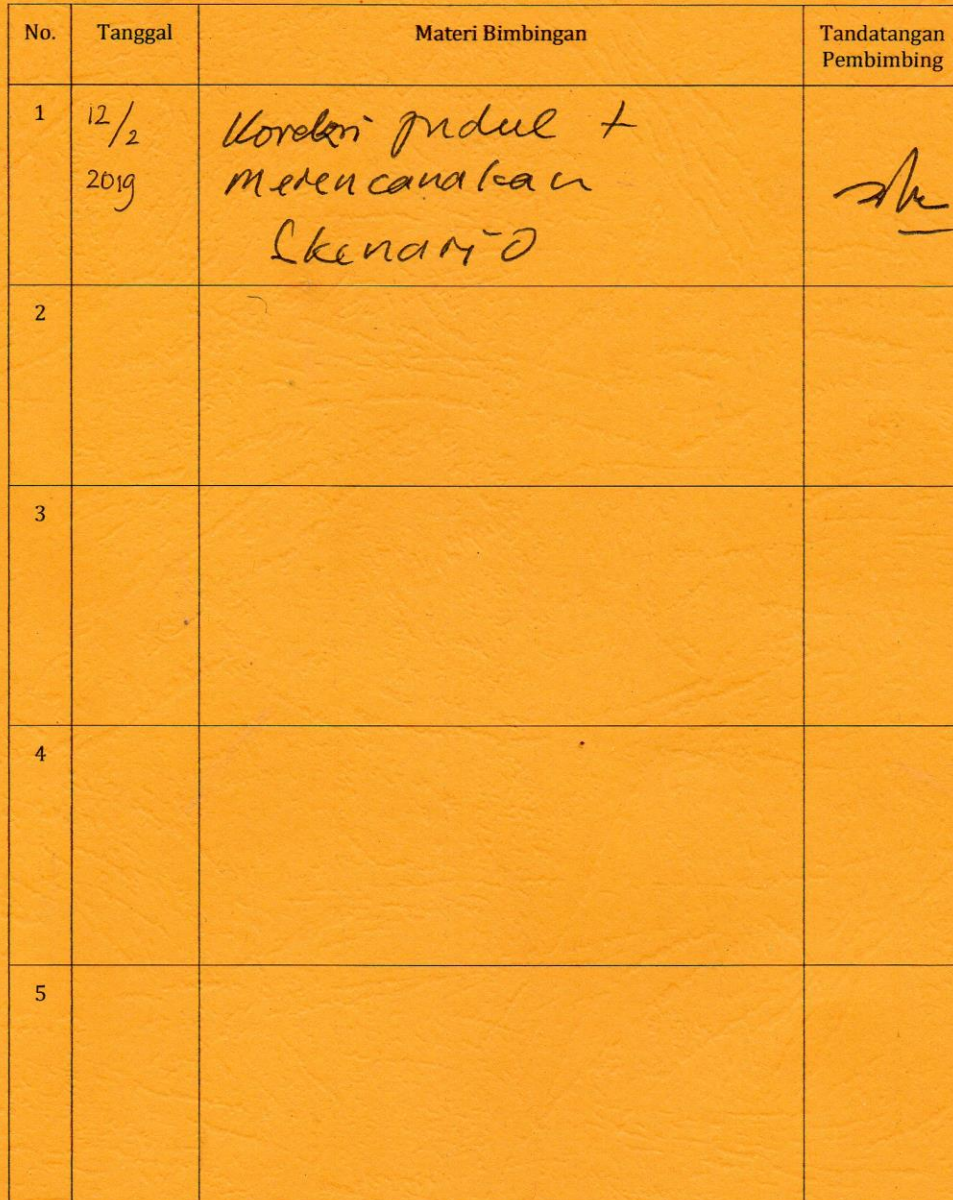 No. Tanggal Materi Bimbingan Tandatangan
Pembimbing
1 12/2 Koreksi judul +
2019 merencanakan
Skenario
2
3
4
5